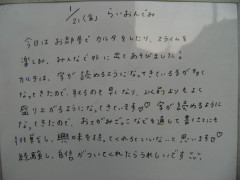 1/21(金) らいおんぐみ
今日はお部屋でカルタをしたり、スライムを
楽しみ、みんなで外に出てあそびました。
カルタは、字が読めるようになってきている子がすご
なってきたので、取るのも早くなり、以前よりもよく
盛り上がるようになってきています♡ 字が読めるように
なってきたので、おてがみごっこなどを通して書くことにも
挑戦し、興味を持ってくれるといいな…と思います♡
経験し、自信がついてくれたらうれしいです…。